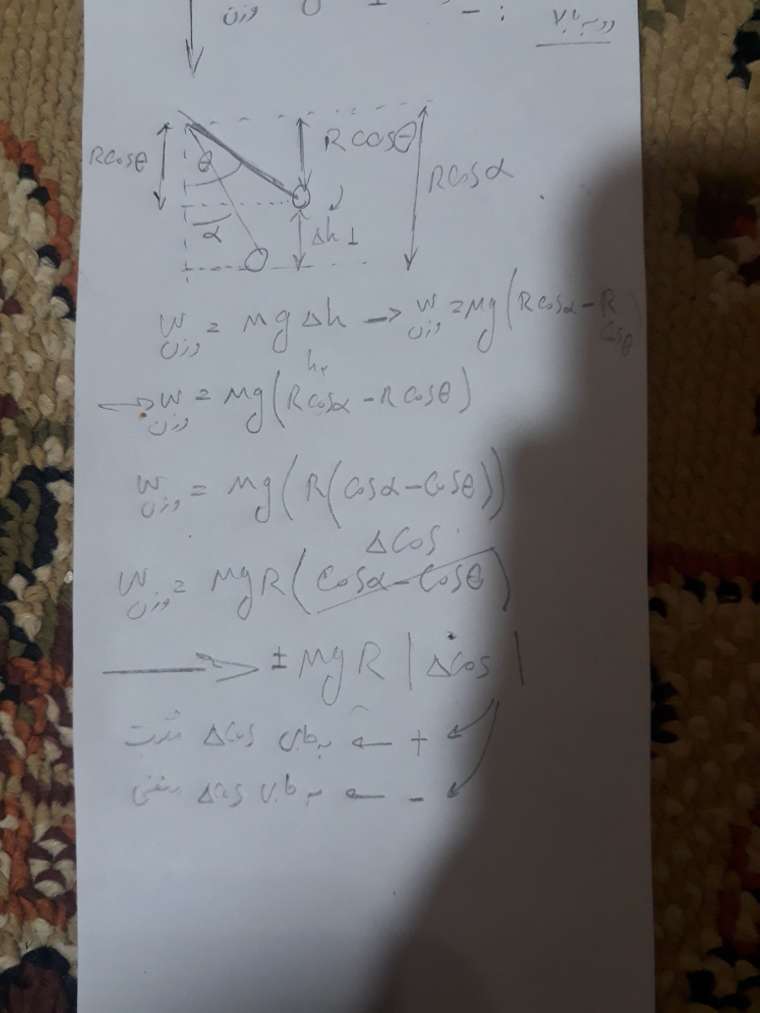 وزن
رو به بالا
Rcosθ
θ
Rcosθ
Rcosα
α
Δh
W وزن = mgΔh → W وزن = mg(Rcosα - Rcosθ)
→ W وزن = mg(Rcosα - Rcosθ)
W وزن = mg(R(cosα - cosθ))
Δcos
W وزن = mgR(cosα - cosθ)
→ ± mgR|Δcos|
+ ← به طرف Δcos مثبت
- ← به طرف Δcos منفی